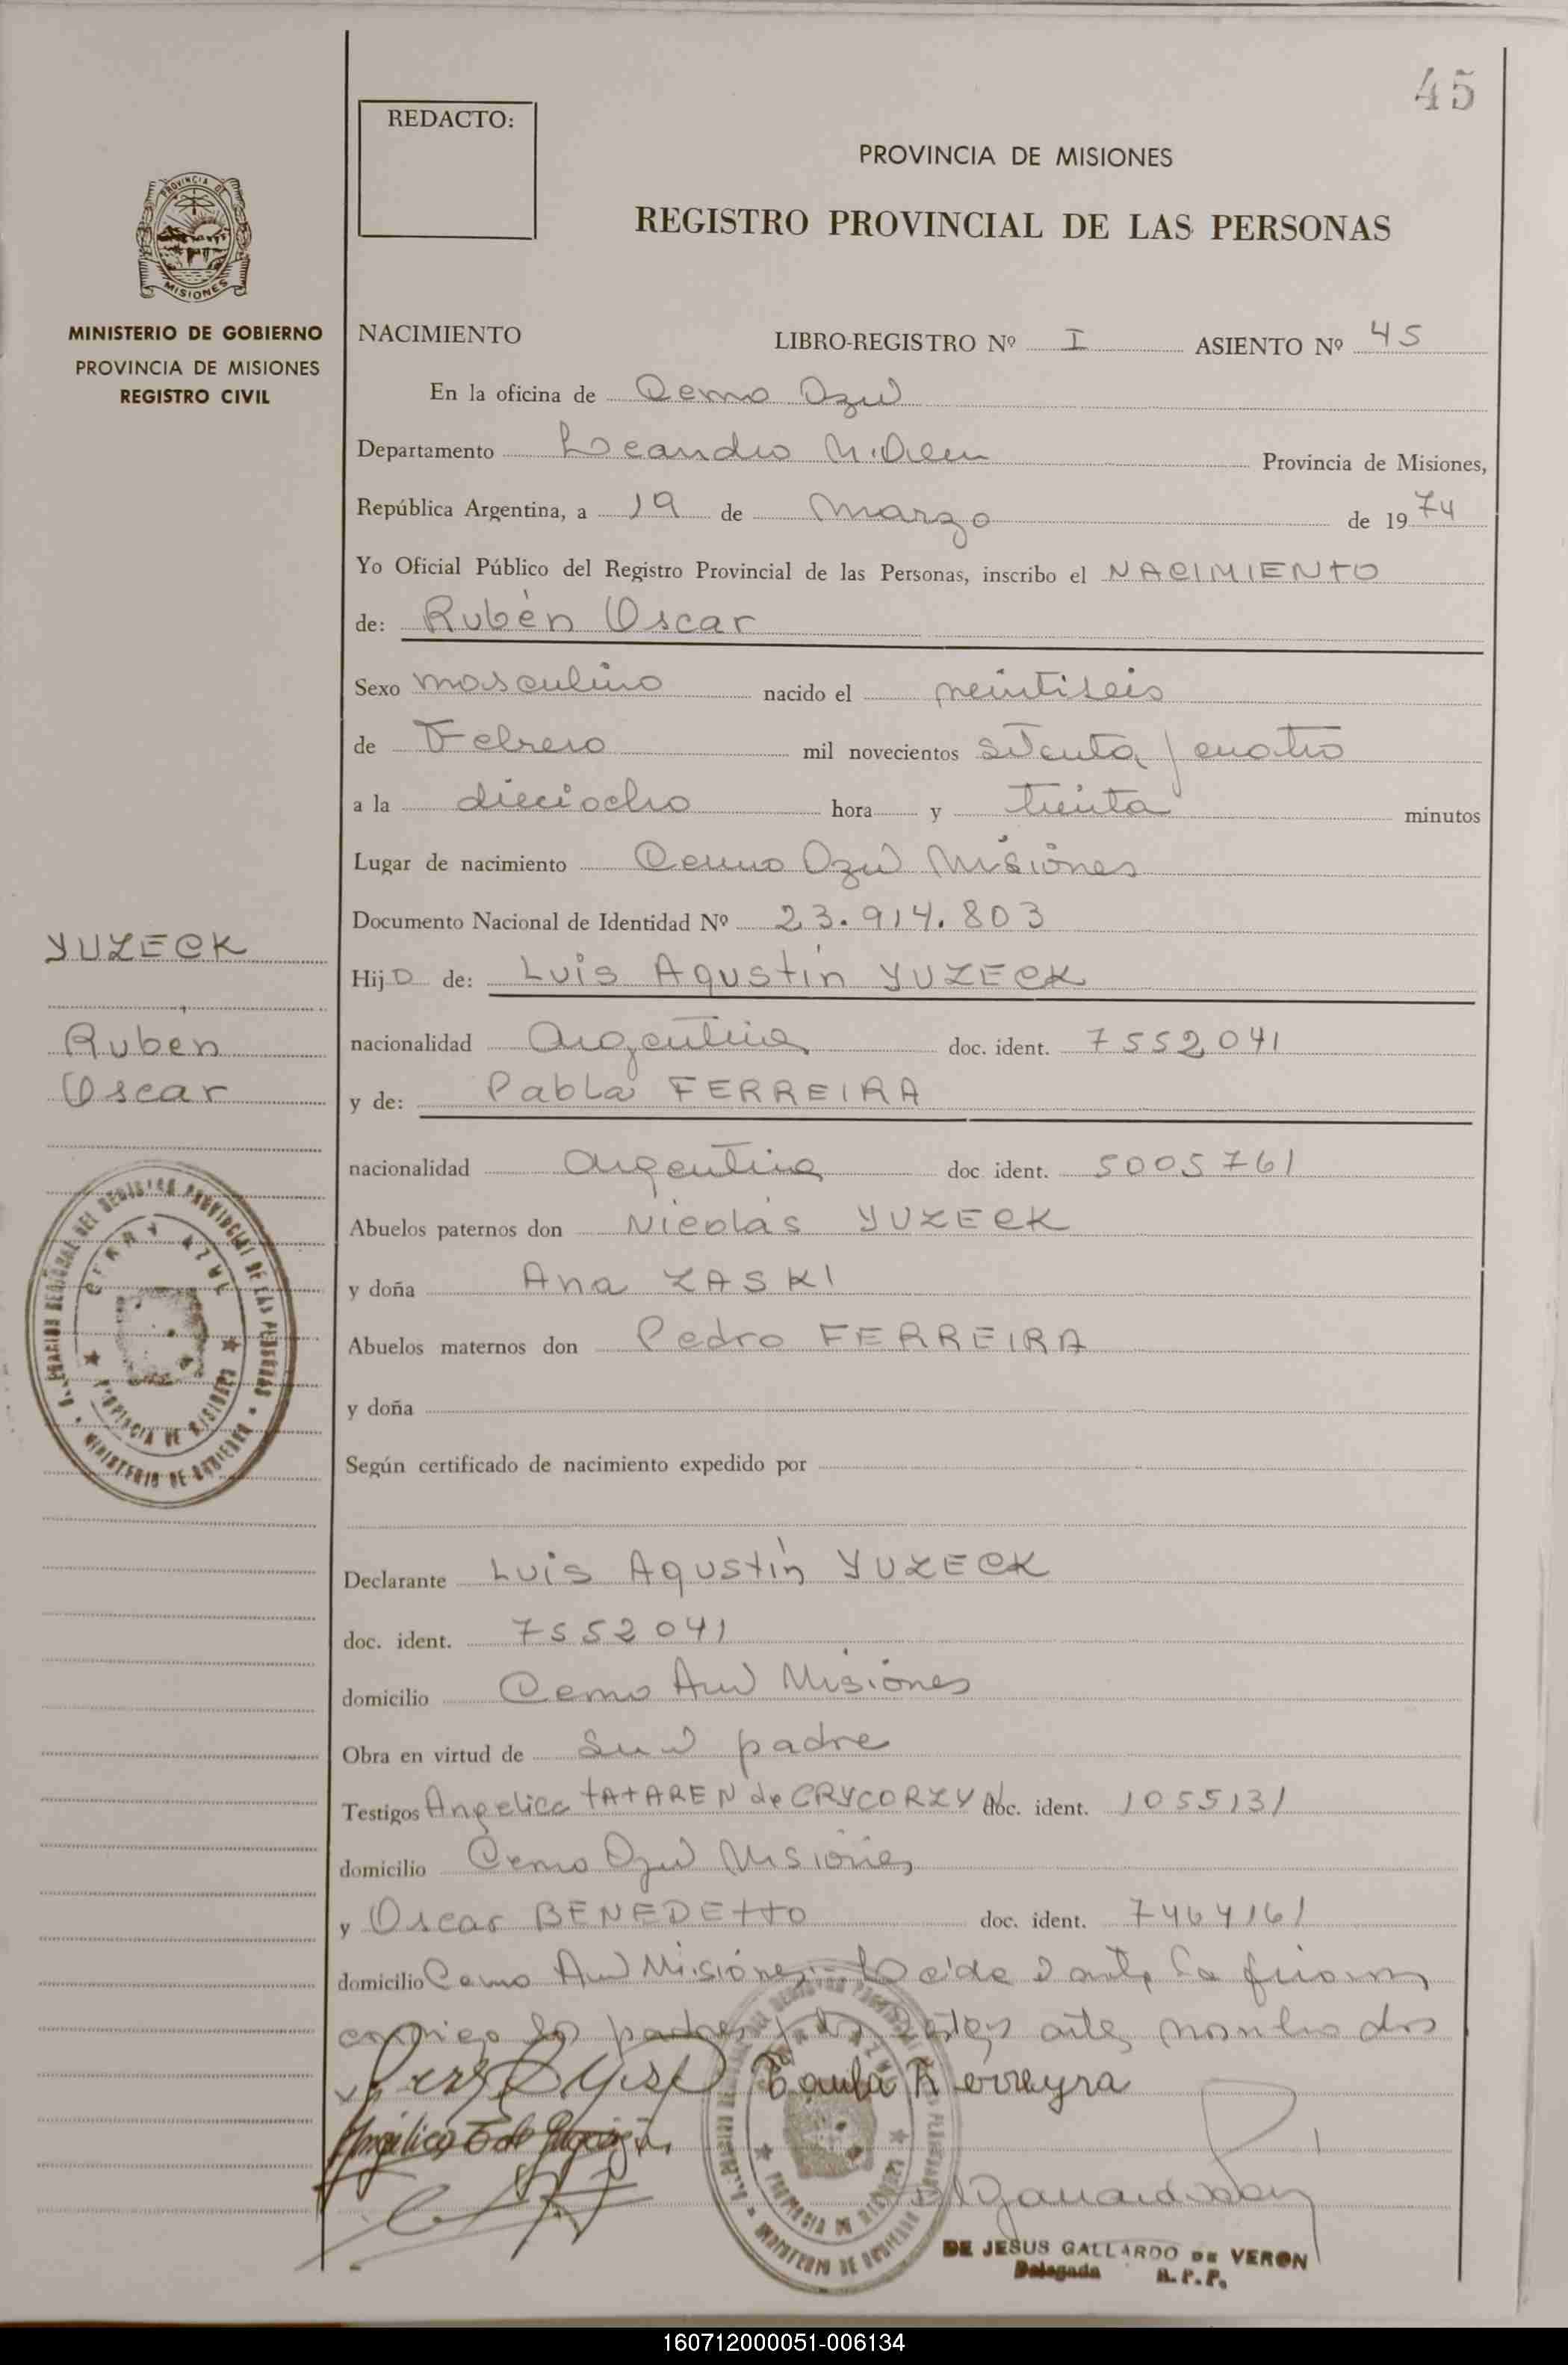 45
REDACTO:
PROVINCIA DE MISIONES
REGISTRO PROVINCIAL DE LAS PERSONAS
PROVINCIA DE
MISIONES
MINISTERIO DE GOBIERNO
PROVINCIA DE MISIONES
REGISTRO CIVIL
NACIMIENTO LIBRO-REGISTRO Nº I ASIENTO Nº 45
En la oficina de Cerro Azul
Departamento Leandro N. Alem Provincia de Misiones,
República Argentina, a 19 de Marzo de 1974
Yo Oficial Público del Registro Provincial de las Personas, inscribo el NACIMIENTO
de: Rubén Oscar
Sexo masculino nacido el veintiseis
de Febrero mil novecientos setenta y cuatro
a la dieciocho hora y treinta minutos
Lugar de nacimiento Cerro Azul Misiones
Documento Nacional de Identidad Nº 23.914.803
YUZECK
Rubén
Oscar
Hijo de: Luis Agustín YUZECK
nacionalidad Argentina doc. ident. 7552041
y de: Pabla FERREIRA
nacionalidad argentina doc. ident. 5005761
Abuelos paternos don Nicolás YUZECK
y doña Ana ZASKI
Abuelos maternos don Pedro FERREIRA
y doña
Según certificado de nacimiento expedido por
Declarante Luis Agustín YUZECK
doc. ident. 7552041
domicilio Cerro Azul Misiones
Obra en virtud de ser el padre
Testigos Angelica TATAREN de CRYCORZY doc. ident. 1055131
domicilio Cerro Azul Misiones
y Oscar BENEDETTO doc. ident. 7464161
domicilio Cerro Azul Misiones.- Leida el acta la firman
conmigo los padres y los testigos ante nombrados
Paula Ferreyra
DE JESUS GALLARDO DE VERON
Delegada R.P.P.
CERRO AZUL
PROVINCIA DE MISIONES
MINISTERIO DE GOBIERNO
160712000051-006134